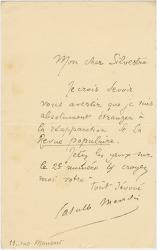 Mon cher Silvestre
Je crois devoir
vous avertir que je suis
absolument étranger à
la réapparition de la
Revue populaire.
Jetez les yeux sur
le 25e numéro et croyez
moi votre
Tout dévoué
Catulle Mendès